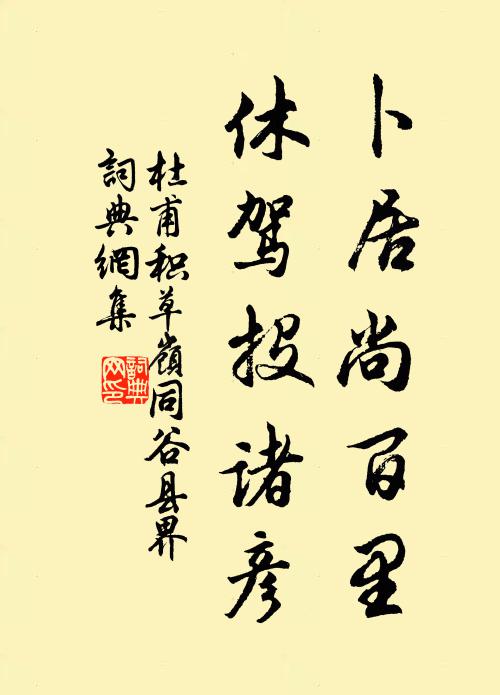 卜居尚百里
休驾投诸彦
杜甫积草嶺同谷县界
詞典網集
詞典网印